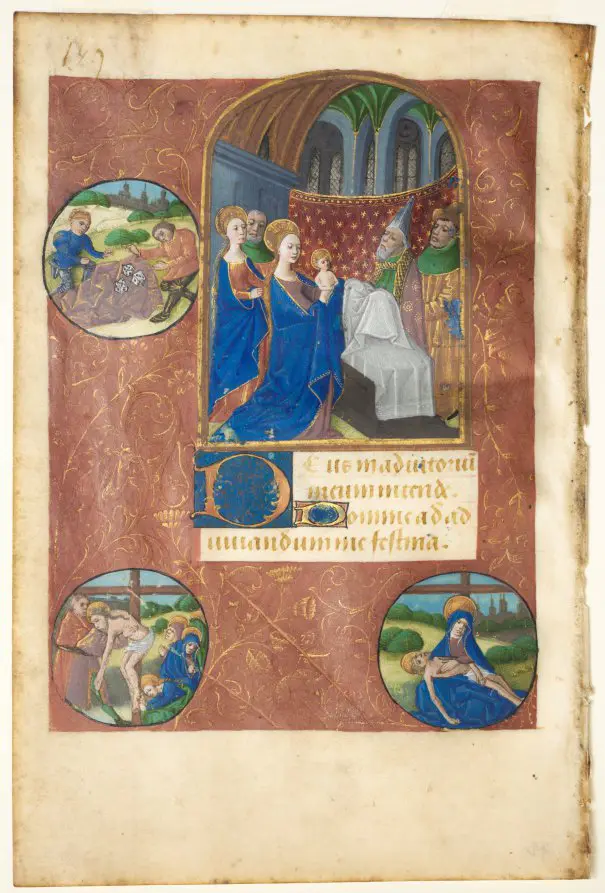 DEus in adiutoriū
meum intende.
Domine ad ad
iuuandum me festina.